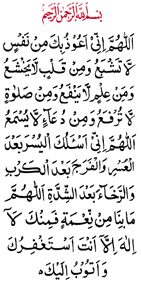 بِسْمِ اللهِ الرَّحْمٰنِ الرَّحِيْمِ
اَللّٰهُمَّ اِنِّیْ اَعُوْذُ بِكَ مِنْ نَّفْسٍ
لَّا تَشْبَعُ وَمِنْ قَلْبٍ لَّا يَخْشَعُ
وَمِنْ عِلْمٍ لَّا يَنْفَعُ وَمِنْ صَلٰوةٍ
لَّا تُرْفَعُ وَمِنْ دُعَآءٍ لَّا يُسْمَعُ
اَللّٰهُمَّ اِنِّیْ اَسْئَلُكَ الْيُسْرَ بَعْدَ
الْعُسْرِ وَالْفَرَجَ بَعْدَ الْكَرْبِ
وَالرَّخَآءَ بَعْدَ الشِّدَّةِ اَللّٰهُمَّ
مَا بِنَا مِنْ نِعْمَةٍ فَمِنْكَ لَآ
اِلٰهَ اِلَّآ اَنْتَ اَسْتَغْفِرُكَ
وَاَتُوْبُ اِلَيْكَ